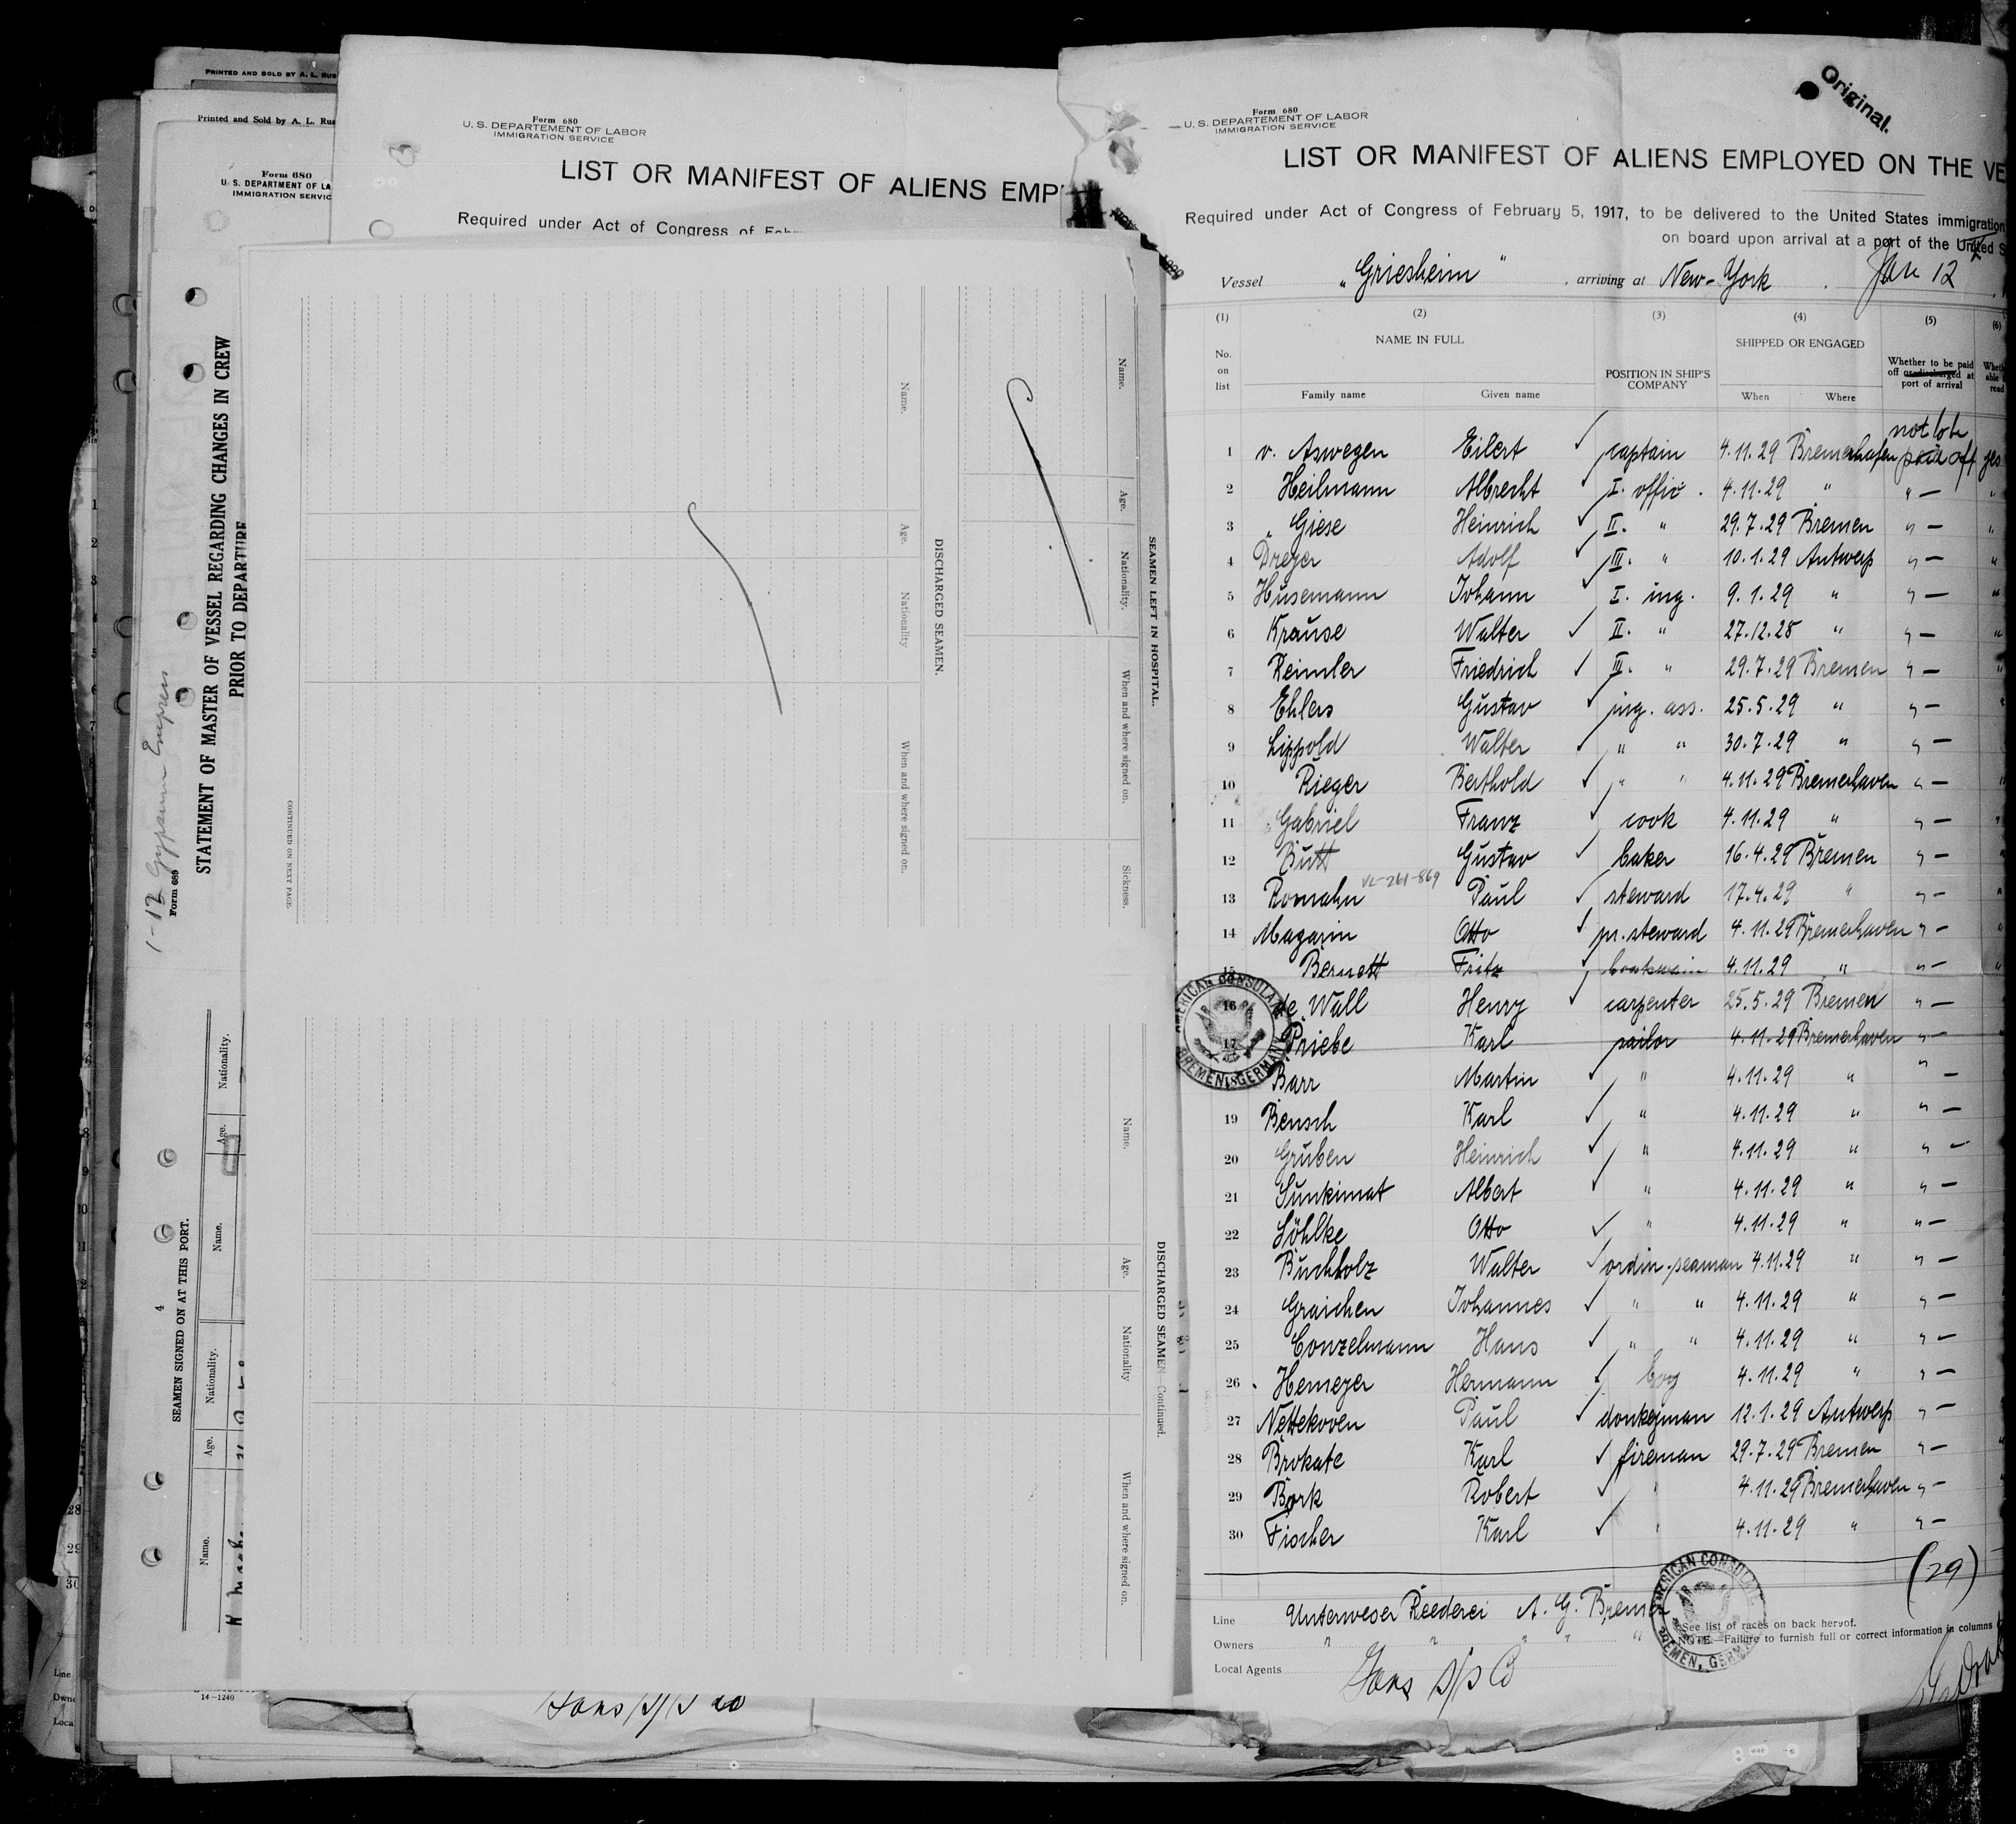 PRINTED AND SOLD BY A. L. RUS
Printed and Sold by A. L. Rus
Form 680
U. S. DEPARTMENT OF LA
IMMIGRATION SERVIC
Form 680
U. S. DEPARTEMENT OF LABOR
IMMIGRATION SERVICE
LIST OR MANIFEST OF ALIENS EMP
Required under Act of Congress of Feb
1-12 Gypsum Empress
Form 689
STATEMENT OF MASTER OF VESSEL REGARDING CHANGES IN CREW
PRIOR TO DEPARTURE
4
SEAMEN SIGNED ON AT THIS PORT.
Name. Age. Nationality. Name. Age. Nationality.
14—1240
CONTINUED ON NEXT PAGE.
Name. Age. Nationality When and where signed on.
DISCHARGED SEAMEN.
Name. Age. Nationality. When and where signed on. Sickness.
SEAMEN LEFT IN HOSPITAL.
Name. Age. Nationality When and where signed on.
DISCHARGED SEAMEN—Continued.
Original.
Form 680
U. S. DEPARTEMENT OF LABOR
IMMIGRATION SERVICE
LIST OR MANIFEST OF ALIENS EMPLOYED ON THE VE
Required under Act of Congress of February 5, 1917, to be delivered to the United States immigration
on board upon arrival at a port of the United S
Vessel „Griesheim“, arriving at New-York. Jan 12
(1) (2) (3) (4) (5) (6)
No. on list NAME IN FULL POSITION IN SHIP'S COMPANY SHIPPED OR ENGAGED Whether to be paid off or discharged at port of arrival Wheth able read
Family name Given name When Where
not to be
1 v. Aswegen Eilert captain 4.11.29 Bremerhafen paid off yes
2 Heilmann Albrecht I. offic. 4.11.29 " " — "
3 Giese Heinrich II. " 29.7.29 Bremen " — "
4 Dreyer Adolf III. " 10.1.29 Antwerp " — "
5 Husemann Johann I. ing. 9.1.29 " " — "
6 Krause Walter II. " 27.12.28 " " — "
7 Reimler Friedrich III. " 29.7.29 Bremen " — "
8 Ehlers Gustav ing. ass. 25.5.29 " " —
9 Lippold Walter " " 30.7.29 " " —
10 Rieger Berthold " " 4.11.29 Bremerhaven " —
11 Gabriel Franz cook 4.11.29 " " —
12 Butt Gustav baker 16.4.29 Bremen " —
VL-261-869
13 Romahn Paul steward 17.4.29 " " —
14 Magarin Otto pr. steward 4.11.29 Bremerhaven " —
15 Bernett Fritz boatswain 4.11.29 " " —
16 de Wall Henry carpenter 25.5.29 Bremen " —
17 Priebe Karl sailor 4.11.29 Bremerhaven " —
18 Barr Martin " 4.11.29 " " —
19 Bensch Karl " 4.11.29 " " —
20 Gruben Heinrich " 4.11.29 " " —
21 Sunkimat Albert " 4.11.29 " " —
22 Söhlke Otto " 4.11.29 " " —
23 Buchholz Walter ordin. seaman 4.11.29 " " —
24 Graichen Johannes " " 4.11.29 " " —
25 Conzelmann Hans " " 4.11.29 " " —
26 Hemeyer Hermann boy 4.11.29 " " —
27 Nettekoven Paul donkeyman 12.1.29 Antwerp " —
28 Brokate Karl fireman 29.7.29 Bremen " —
29 Bork Robert " 4.11.29 Bremerhaven " —
30 Fischer Karl " 4.11.29 " " —
(29)
AMERICAN CONSULATE
BREMEN, GERMANY
AMERICAN CONSULATE
BREMEN, GERMANY
Line Unterweser Reederei A. G. Bremen
Owners " " " " "
Local Agents
See list of races on back hereof.
NOTE.—Failure to furnish full or correct information in columns
Line
Owne
Loca